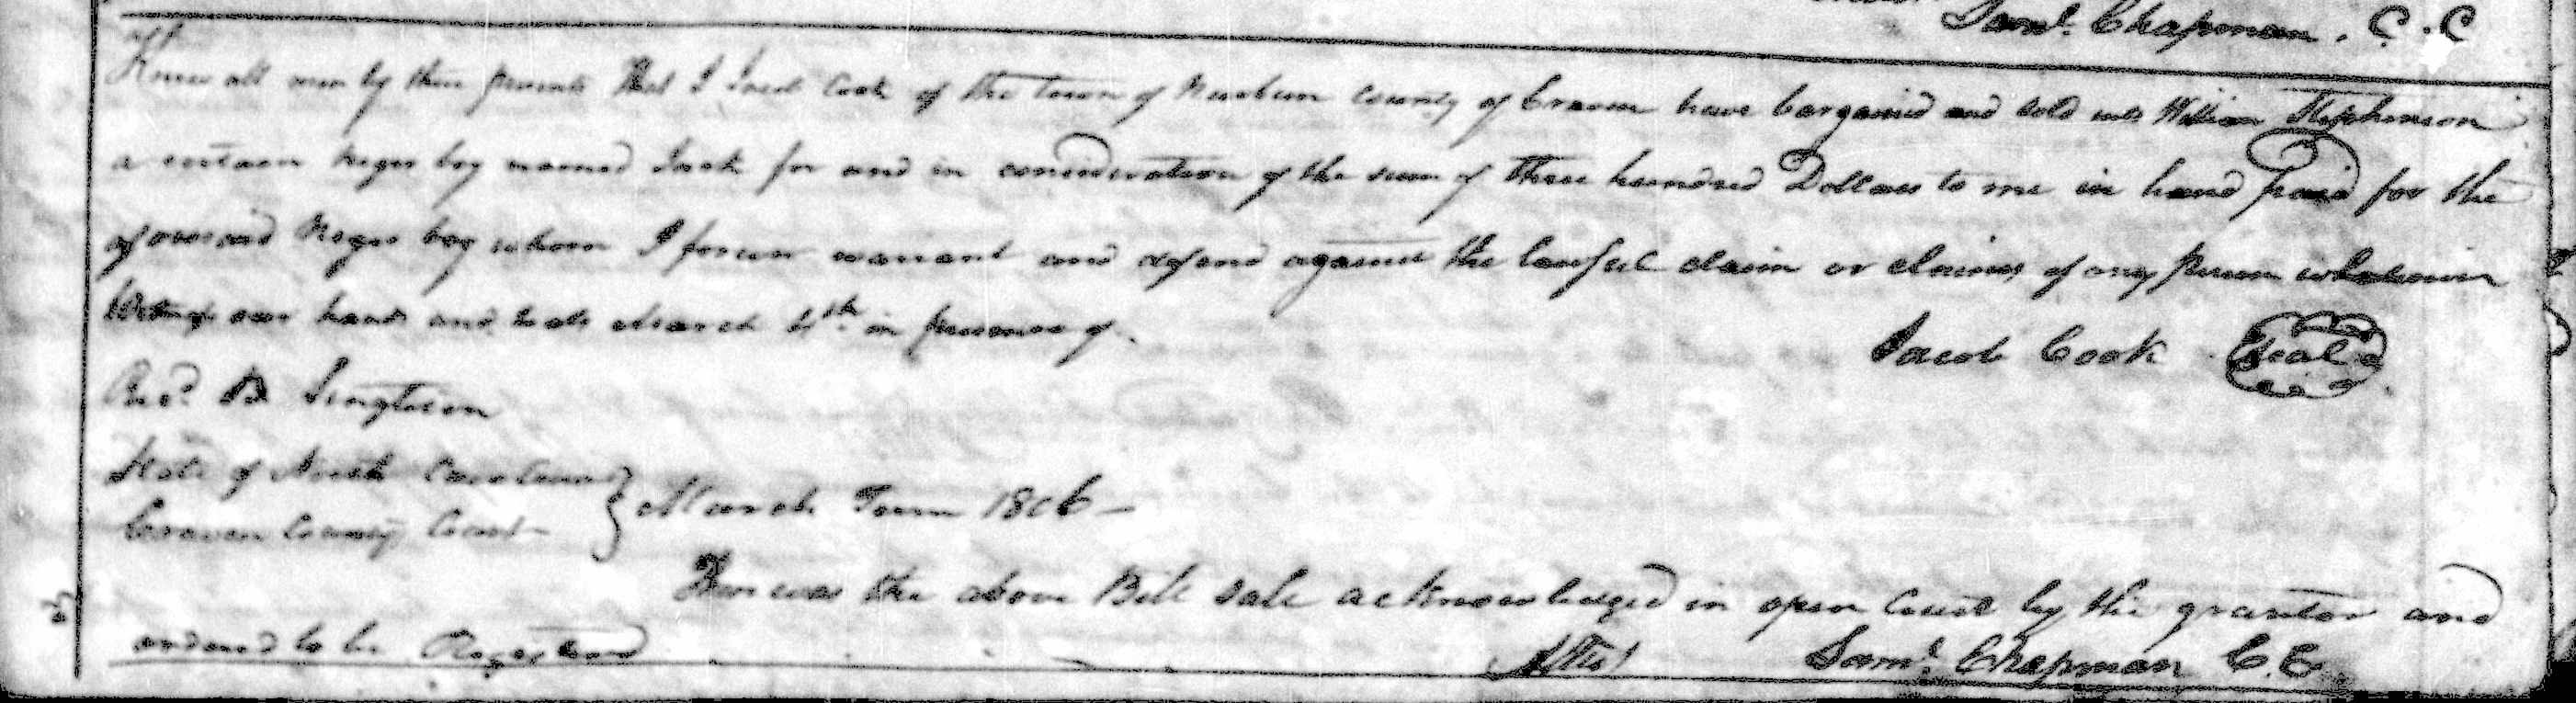 Saml. Chapman. C. C
Know all men by these presents that I Jacob Cook of the town of Newbern county of Craven have bargained and sold unto William Stephenson
a certain Negro boy named Jack for and in consideration of the sum of three hundred Dollars to me in hand paid for the
aforesaid Negro boy whom I forever warrant and defend against the lawful claim or claims of any person whatsoever
Witness our hands and seals March 4th in presence of.
Jacob Cook Seal
B Singleton
State of North Carolina
Craven County Court } March Term 1806
Then was the above Bill sale acknowledged in open Court by the grantor and
ordered to be Registered
Attest Saml. Chapman C. C.